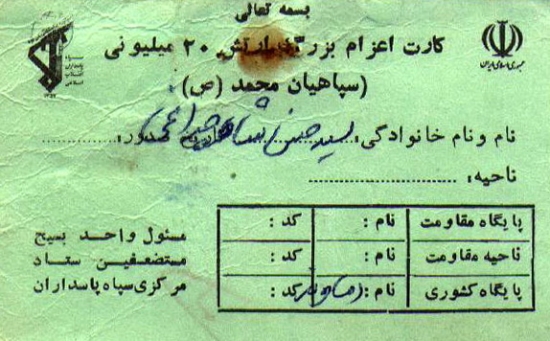 بسمه تعالی
کارت اعزام بزرگ ارتش ۲۰ میلیونی
جمهوری اسلامی ایران
سپاه پاسداران انقلاب اسلامی
(سپاهیان محمد (ص
نام و نام خانوادگی: سید حسن صدور:
ناحیه:
پایگاه مقاومت نام: کد:
ناحیه مقاومت نام: کد:
پایگاه کشوری نام: کد:
مسئول واحد بسیج
مستضعفین ستاد
مرکزی سپاه پاسداران